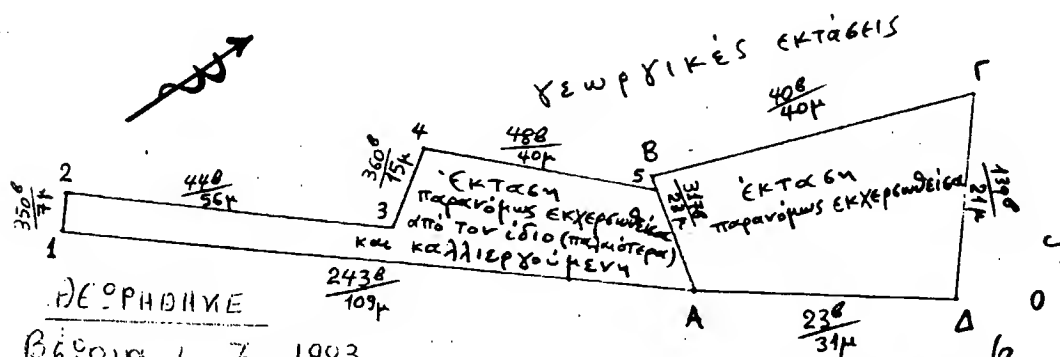 γεωργικές εκτάσεις
Γ
40θ
40μ
4
48θ
40μ
Β
5
360θ
15μ
2
44θ
56μ
350θ
7μ
1
3
έκταση
παρανόμως εκχερσωθείσα
από τον ίδιο (παλαιότερα)
και καλλιεργούμενη
317θ
έκταση
παρανόμως εκχερσωθείσα
139θ
21μ
243θ
109μ
Α
23θ
31μ
Δ
Ο
ΘΕΩΡΗΘΗΚΕ
Βέροια